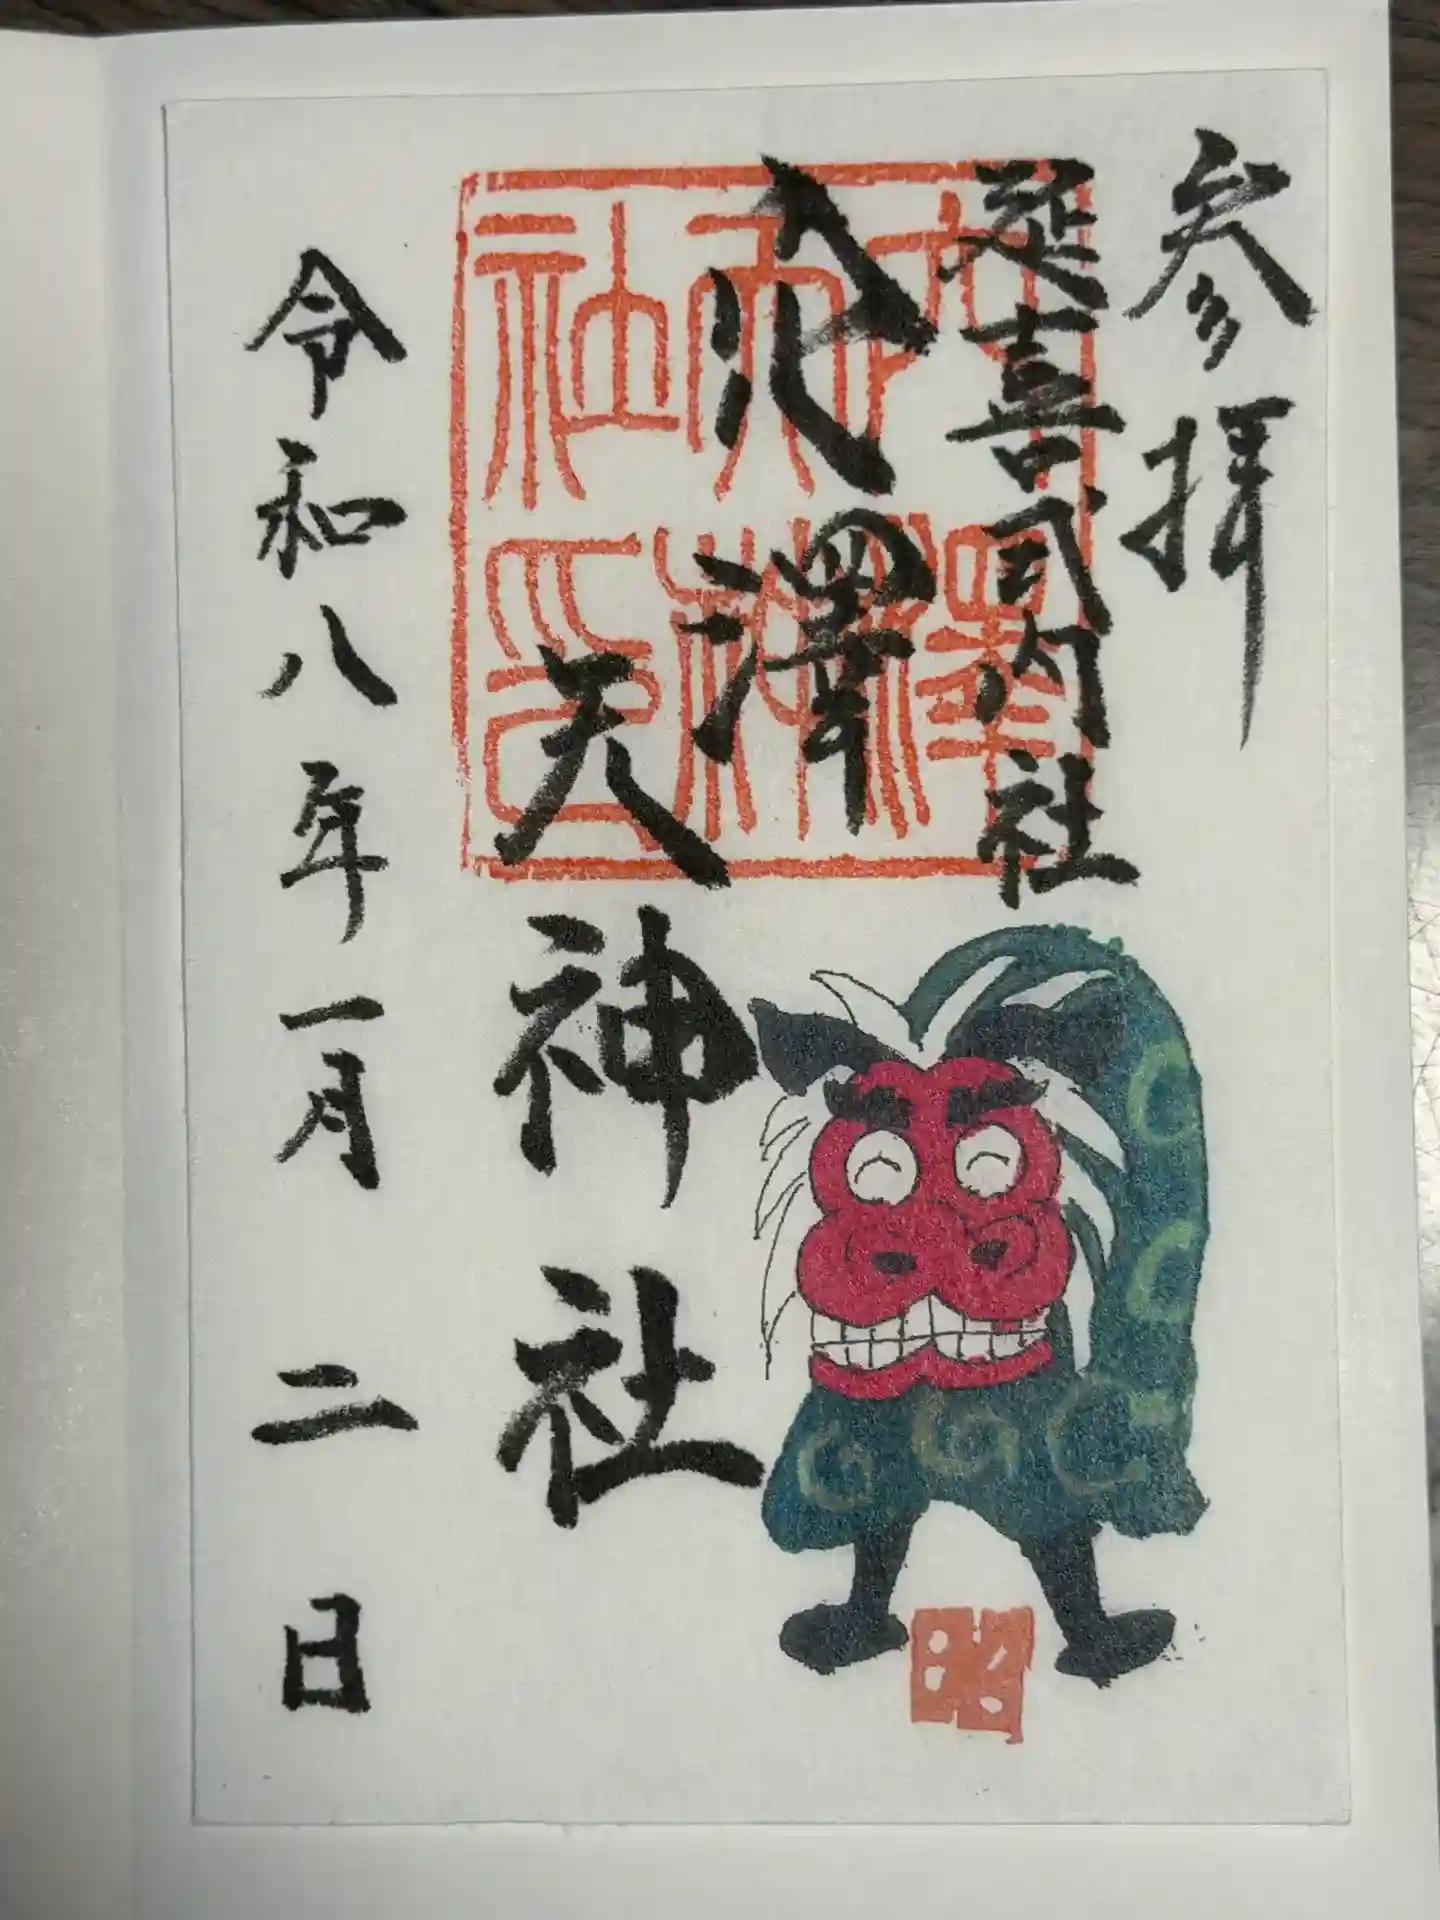 参拝
延喜式内社
穴澤
天神社
令和八年一月二日
穴澤
天神
社印
昭